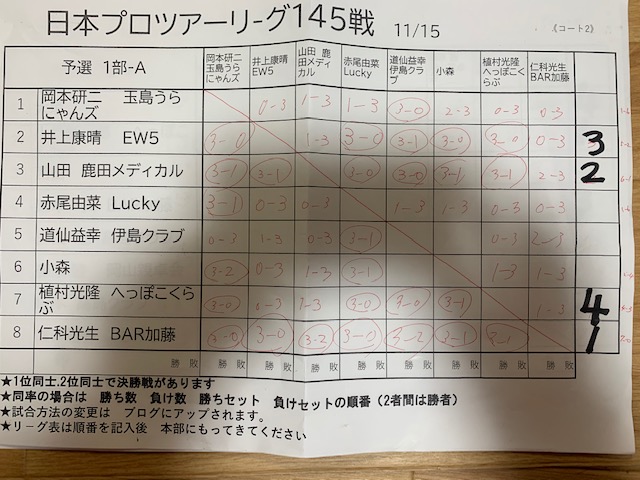 日本プロツアーリーグ145戦 11/15 《コート2》
予選 1部-A 岡本研二 玉島うらにゃんズ 井上康晴 EW5 山田 鹿田メディカル 赤尾由菜 Lucky 道仙益幸 伊島クラブ 小森 植村光隆 へっぽこくらぶ 仁科光生 BAR加藤
1 岡本研二 玉島うらにゃんズ 0-3 1-3 1-3 3-0 2-3 0-3 0-3 1-6
2 井上康晴 EW5 3-0 1-3 3-0 3-1 3-0 3-0 0-3 3
3 山田 鹿田メディカル 3-1 3-1 3-0 3-0 3-1 3-1 2-3 2 6-1
4 赤尾由菜 Lucky 3-1 0-3 0-3 1-3 1-3 0-3 0-3 1-6
5 道仙益幸 伊島クラブ 0-3 1-3 0-3 3-1 0-3 2-3
6 小森 3-2 0-3 1-3 3-1 1-3 1-3
7 植村光隆 へっぽこくらぶ 3-0 0-3 1-3 3-0 3-0 3-1 1-3 4
8 仁科光生 BAR加藤 3-0 3-0 3-2 3-0 3-2 3-1 3-1 1 7-0
勝 敗 勝 敗 勝 敗 勝 敗 勝 敗 勝 敗 勝 敗 勝 敗 勝 敗
★1位同士.2位同士で決勝戦があります
★同率の場合は 勝ち数 負け数 勝ちセット 負けセットの順番(2者間は勝者)
★試合方法の変更は ブログにアップされます。
★リーグ表は順番を記入後 本部にもってきてください